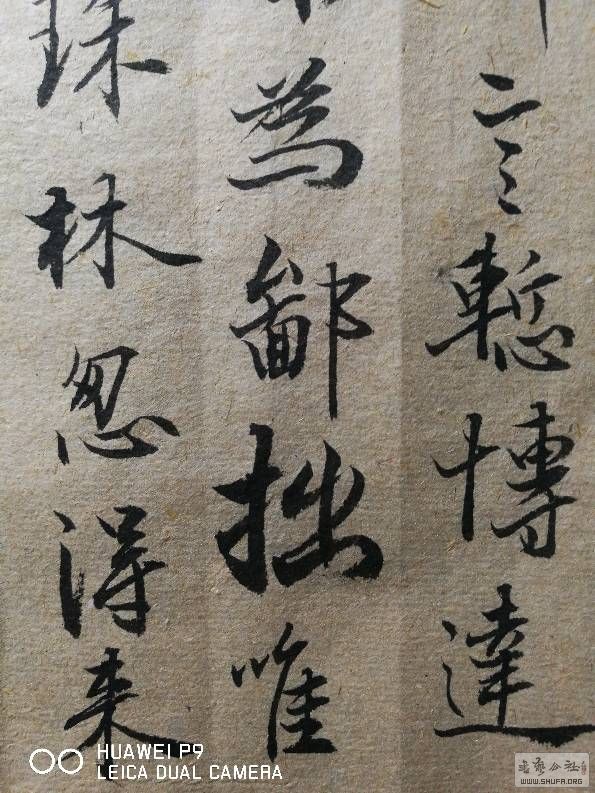 二三慙博達
為鄙拙唯
珠林忽得来
HUAWEI P9
LEICA DUAL CAMERA
WWW.SHUFA.ORG